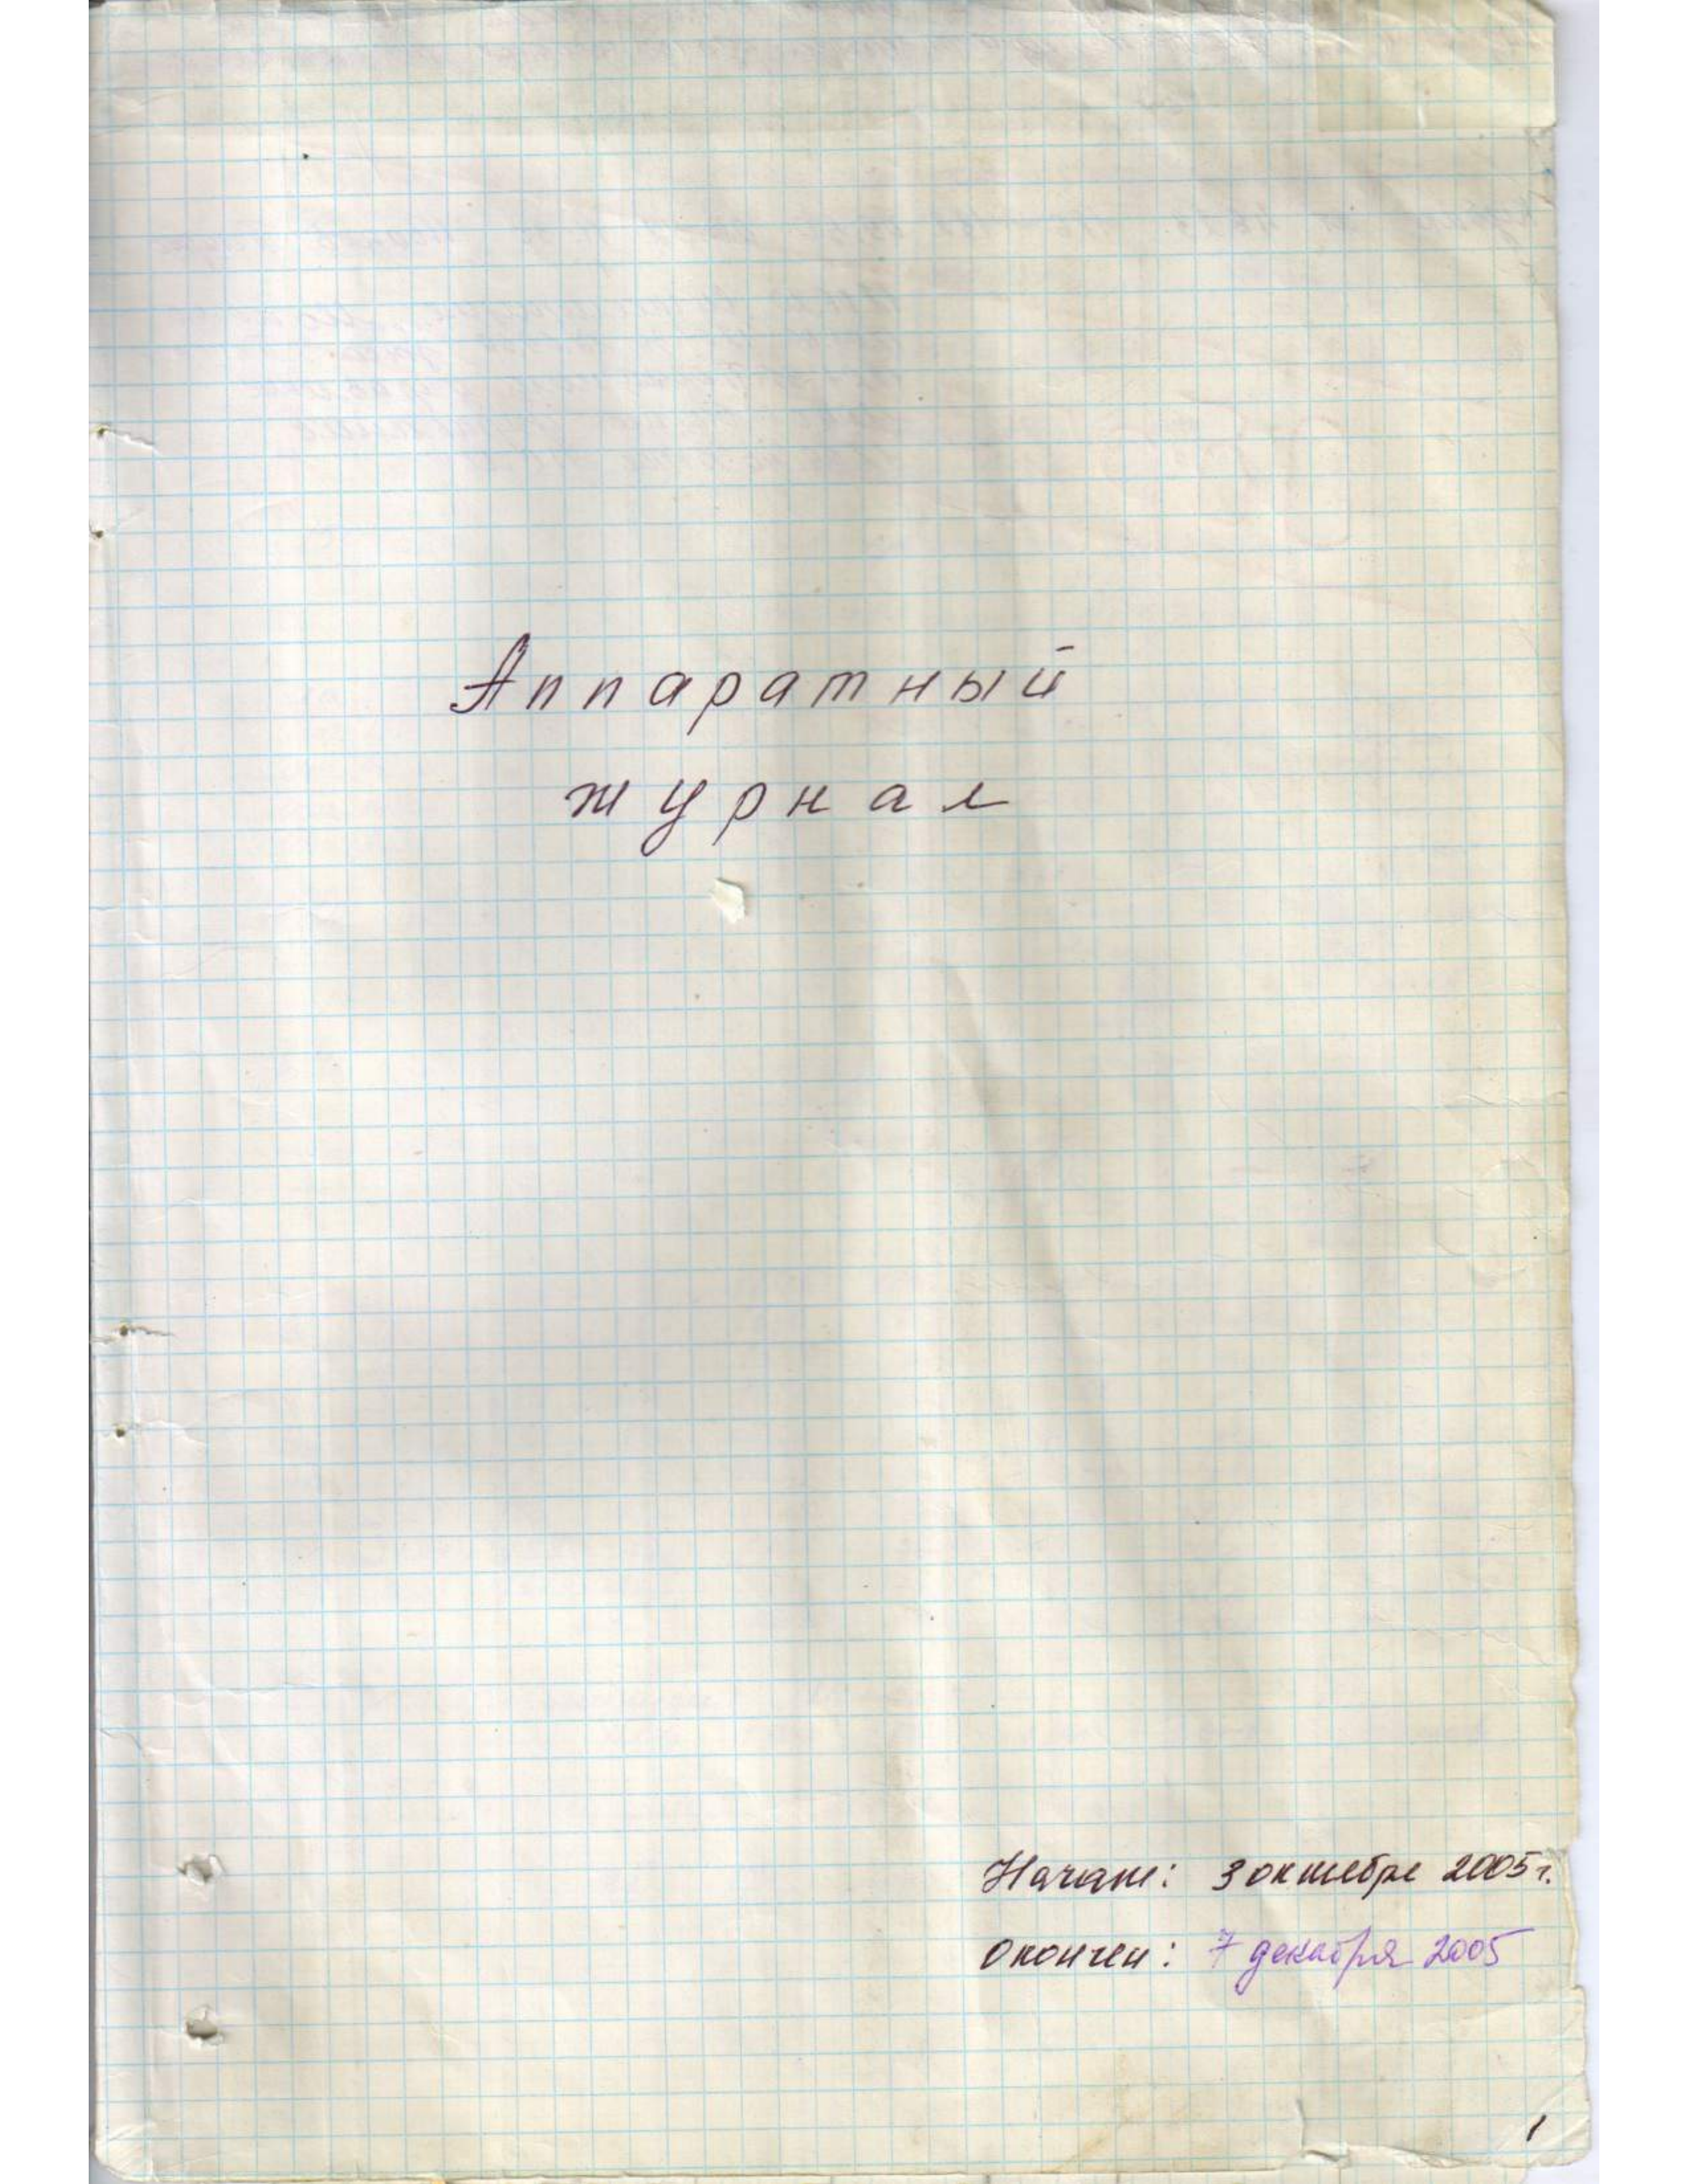 Аппаратный
журнал
Начат: 3 октября 2005 г.
Окончен: 7 декабря 2005
1